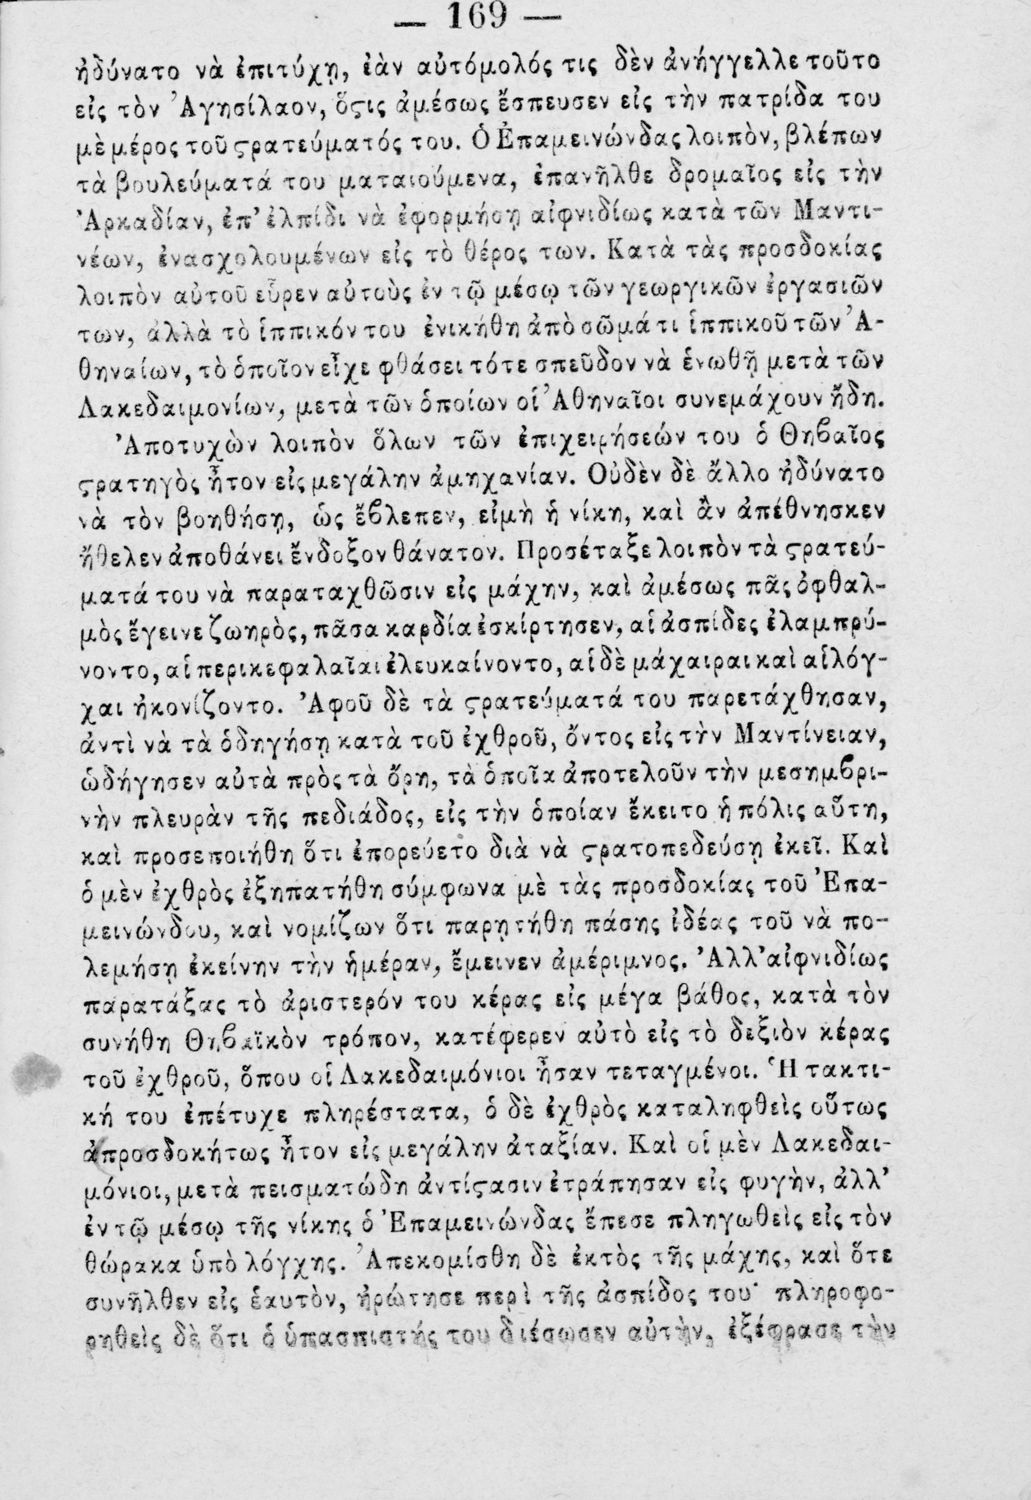 — 169 —
ἠδύνατο νὰ ἐπιτύχῃ, ἐὰν αὐτόμολός τις δὲν ἀνήγγελλε τοῦτο
εἰς τὸν Ἀγησίλαον, ὅϛις ἀμέσως ἔσπευσεν εἰς τὴν πατρίδα του
μὲ μέρος τοῦ ϛρατεύματός του. Ὁ Ἐπαμεινώνδας λοιπὸν, βλέπων
τὰ βουλεύματά του ματαιούμενα, ἐπανῆλθε δρομαῖος εἰς τὴν
Ἀρκαδίαν, ἐπ’ ἐλπίδι νὰ ἐφορμήσῃ αἰφνιδίως κατὰ τῶν Μαντι-
νέων, ἐνασχολουμένων εἰς τὸ θέρος των. Κατὰ τὰς προσδοκίας
λοιπὸν αὐτοῦ εὗρεν αὐτοὺς ἐν τῷ μέσῳ τῶν γεωργικῶν ἐργασιῶν
των, ἀλλὰ τὸ ἱππικόν του ἐνικήθη ἀπὸ σῶμά τι ἱππικοῦ τῶν Ἀ-
θηναίων, τὸ ὁποῖον εἶχε φθάσει τότε σπεῦδον νὰ ἑνωθῇ μετὰ τῶν
Λακεδαιμονίων, μετὰ τῶν ὁποίων οἱ Ἀθηναῖοι συνεμάχουν ἤδη.
Ἀποτυχὼν λοιπὸν ὅλων τῶν ἐπιχειρήσεών του ὁ Θηϐαῖος
ϛρατηγὸς ἦτον εἰς μεγάλην ἀμηχανίαν. Οὐδὲν δὲ ἄλλο ἠδύνατο
νὰ τὸν βοηθήσῃ, ὡς ἔϐλεπεν, εἰμὴ ἡ νίκη, καὶ ἂν ἀπέθνησκεν
ἤθελεν ἀποθάνει ἔνδοξον θάνατον. Προσέταξε λοιπὸν τὰ ϛρατεύ-
ματά του νὰ παραταχθῶσιν εἰς μάχην, καὶ ἀμέσως πᾶς ὀφθαλ-
μὸς ἔγεινε ζωηρὸς, πᾶσα καρδία ἐσκίρτησεν, αἱ ἀσπίδες ἐλαμπρύ-
νοντο, αἱ περικεφαλαῖαι ἐλευκαίνοντο, αἱ δὲ μάχαιραι καὶ αἱ λόγ-
χαι ἠκονίζοντο. Ἀφοῦ δὲ τὰ ϛρατεύματά του παρετάχθησαν,
ἀντὶ νὰ τὰ ὁδηγήσῃ κατὰ τοῦ ἐχθροῦ, ὄντος εἰς τὴν Μαντίνειαν,
ὡδήγησεν αὐτὰ πρὸς τὰ ὄρη, τὰ ὁποῖα ἀποτελοῦν τὴν μεσημϐρι-
νὴν πλευρὰν τῆς πεδιάδος, εἰς τὴν ὁποίαν ἔκειτο ἡ πόλις αὕτη,
καὶ προσεποιήθη ὅτι ἐπορεύετο διὰ νὰ ϛρατοπεδεύσῃ ἐκεῖ. Καὶ
ὁ μὲν ἐχθρὸς ἐξηπατήθη σύμφωνα μὲ τὰς προσδοκίας τοῦ Ἐπα-
μεινώνδου, καὶ νομίζων ὅτι παρῃτήθη πάσης ἰδέας τοῦ νὰ πο-
λεμήσῃ ἐκείνην τὴν ἡμέραν, ἔμεινεν ἀμέριμνος. Ἀλλ’ αἰφνιδίως
παρατάξας τὸ ἀριστερόν του κέρας εἰς μέγα βάθος, κατὰ τὸν
συνήθη Θηϐαϊκὸν τρόπον, κατέφερεν αὐτὸ εἰς τὸ δεξιὸν κέρας
τοῦ ἐχθροῦ, ὅπου οἱ Λακεδαιμόνιοι ἦσαν τεταγμένοι. Ἡ τακτι-
κή του ἐπέτυχε πληρέστατα, ὁ δὲ ἐχθρὸς καταληφθεὶς οὕτως
ἀπροσδοκήτως ἦτον εἰς μεγάλην ἀταξίαν. Καὶ οἱ μὲν Λακεδαι-
μόνιοι, μετὰ πεισματώδη ἀντίϛασιν ἐτράπησαν εἰς φυγὴν, ἀλλ’
ἐν τῷ μέσῳ τῆς νίκης ὁ Ἐπαμεινώνδας ἔπεσε πληγωθεὶς εἰς τὸν
θώρακα ὑπὸ λόγχης. Ἀπεκομίσθη δὲ ἐκτὸς τῆς μάχης, καὶ ὅτε
συνῆλθεν εἰς ἑαυτὸν, ἠρώτησε περὶ τῆς ἀσπίδος του· πληροφο-
ρηθεὶς δὲ ὅτι ὁ ὑπασπιστής του διέσωσεν αὐτὴν, ἐξέφρασε τὴν